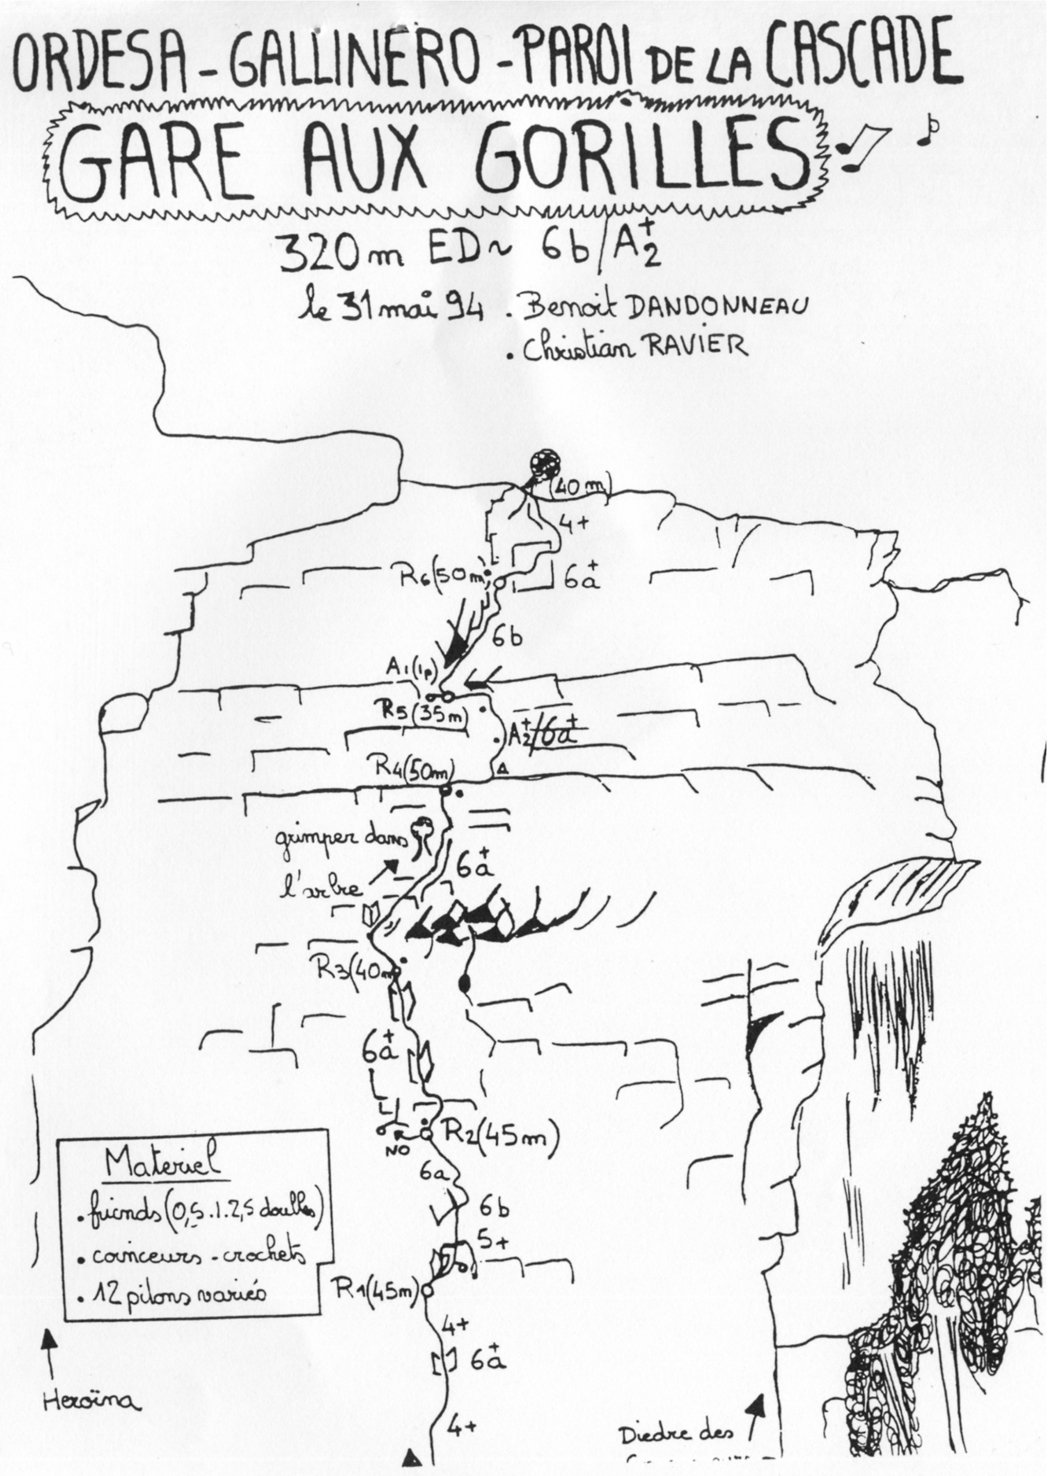 ORDESA - GALLINERO - PAROI DE LA CASCADE
GARE AUX GORILLES
320m ED~ 6b/A2+
le 31 mai 94 . Benoit DANDONNEAU
. Christian RAVIER
(40m)
4+
R6(50m)
6a+
6b
A1(1p)
R5(35m)
A2+/6a+
R4(50m)
grimper dans
l'arbre
6a+
R3(40m)
6a+
R2(45m)
NO
6a
6b
5+
R1(45m)
4+
6a+
4+
Materiel
. friends (0,5.1.2,5 doublés)
. coinceurs - crochets
. 12 pitons variés
Heroïna
Diedre des